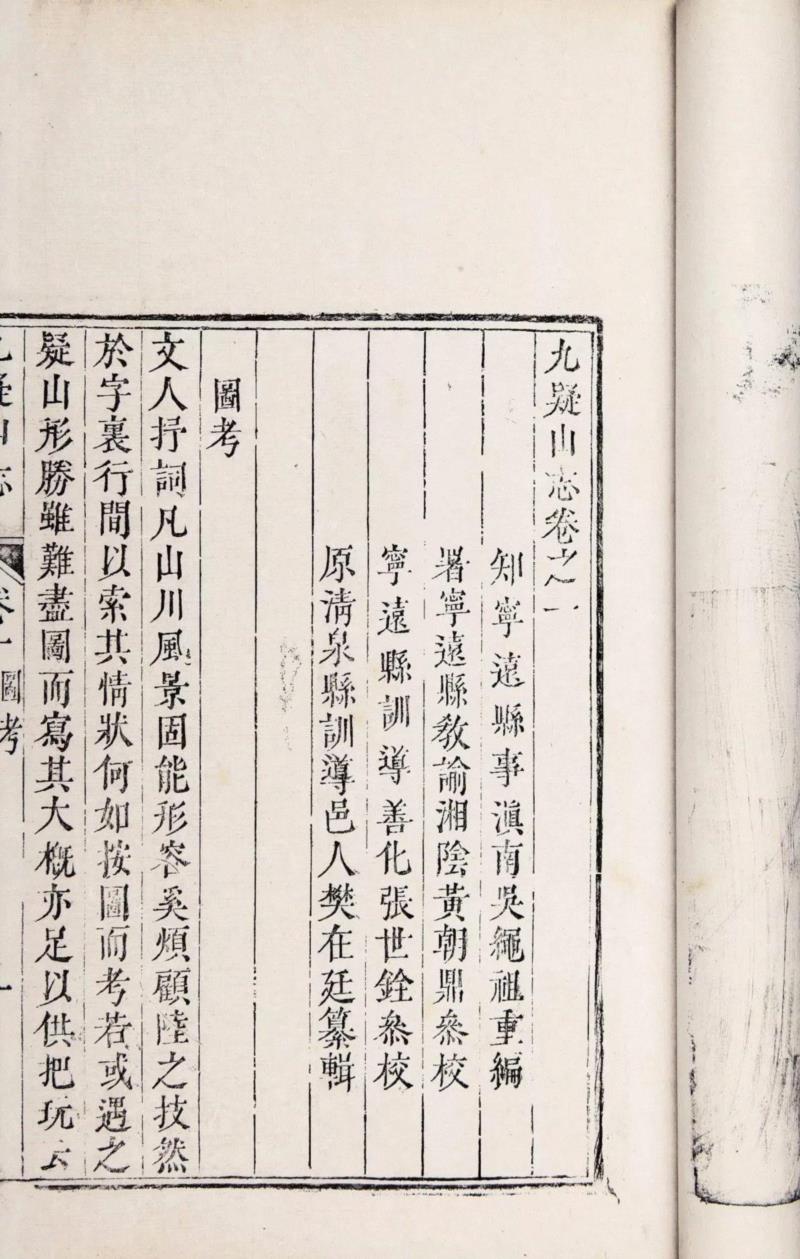 九疑山志卷之一
知寧遠縣事滇南吳繩祖重編
署寧遠縣敎諭湘陰黃朝鼎叅校
寧遠縣訓導善化張世銓叅校
原淸泉縣訓導邑人樊在廷纂輯
圖考
文人抒詞凡山川風景固能形容奚煩顧陸之技然
於字裏行間以索其情狀何如按圖而考若或遇之
疑山形勝雖難盡圖而寫其大槪亦足以供把玩云
九疑山志
卷一圖考
一